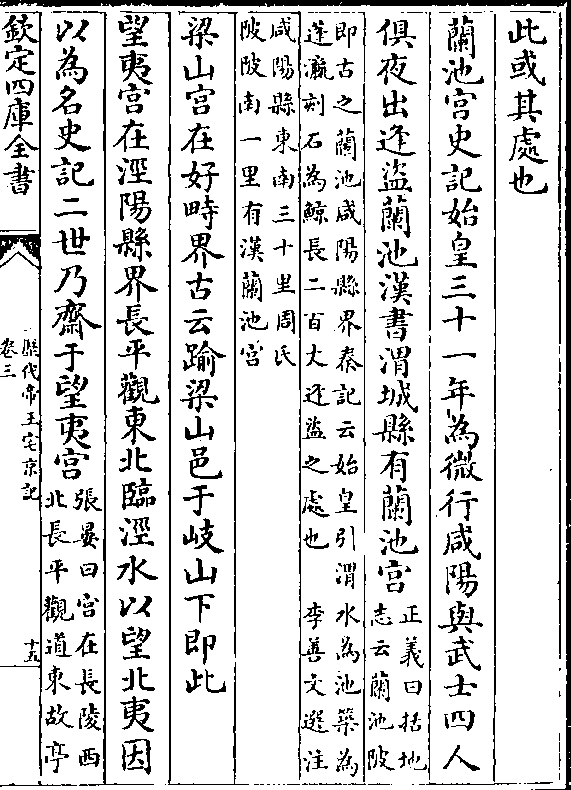 此或其處也
蘭池宮史記始皇三十一年為微行咸陽與武士四人
俱夜出逢盜蘭池漢書渭城縣有蘭池宮正義曰括地
志云蘭池陂
即古之蘭池咸陽縣界秦記云始皇引渭水為池築為
蓬瀛刻石為鯨長二百丈逢盜之處也 李善文選注
咸陽縣東南三十里周氏
陂陂南一里有漢蘭池宮
梁山宮在好畤界古云踰梁山邑于岐山下即此
望夷宮在涇陽縣界長平觀東北臨涇水以望北夷因
以為名史記二世乃齋于望夷宮張晏曰宮在長陵西
北長平觀道東故亭
欽定四庫全書
歷代帝王宅京記
卷三
十五